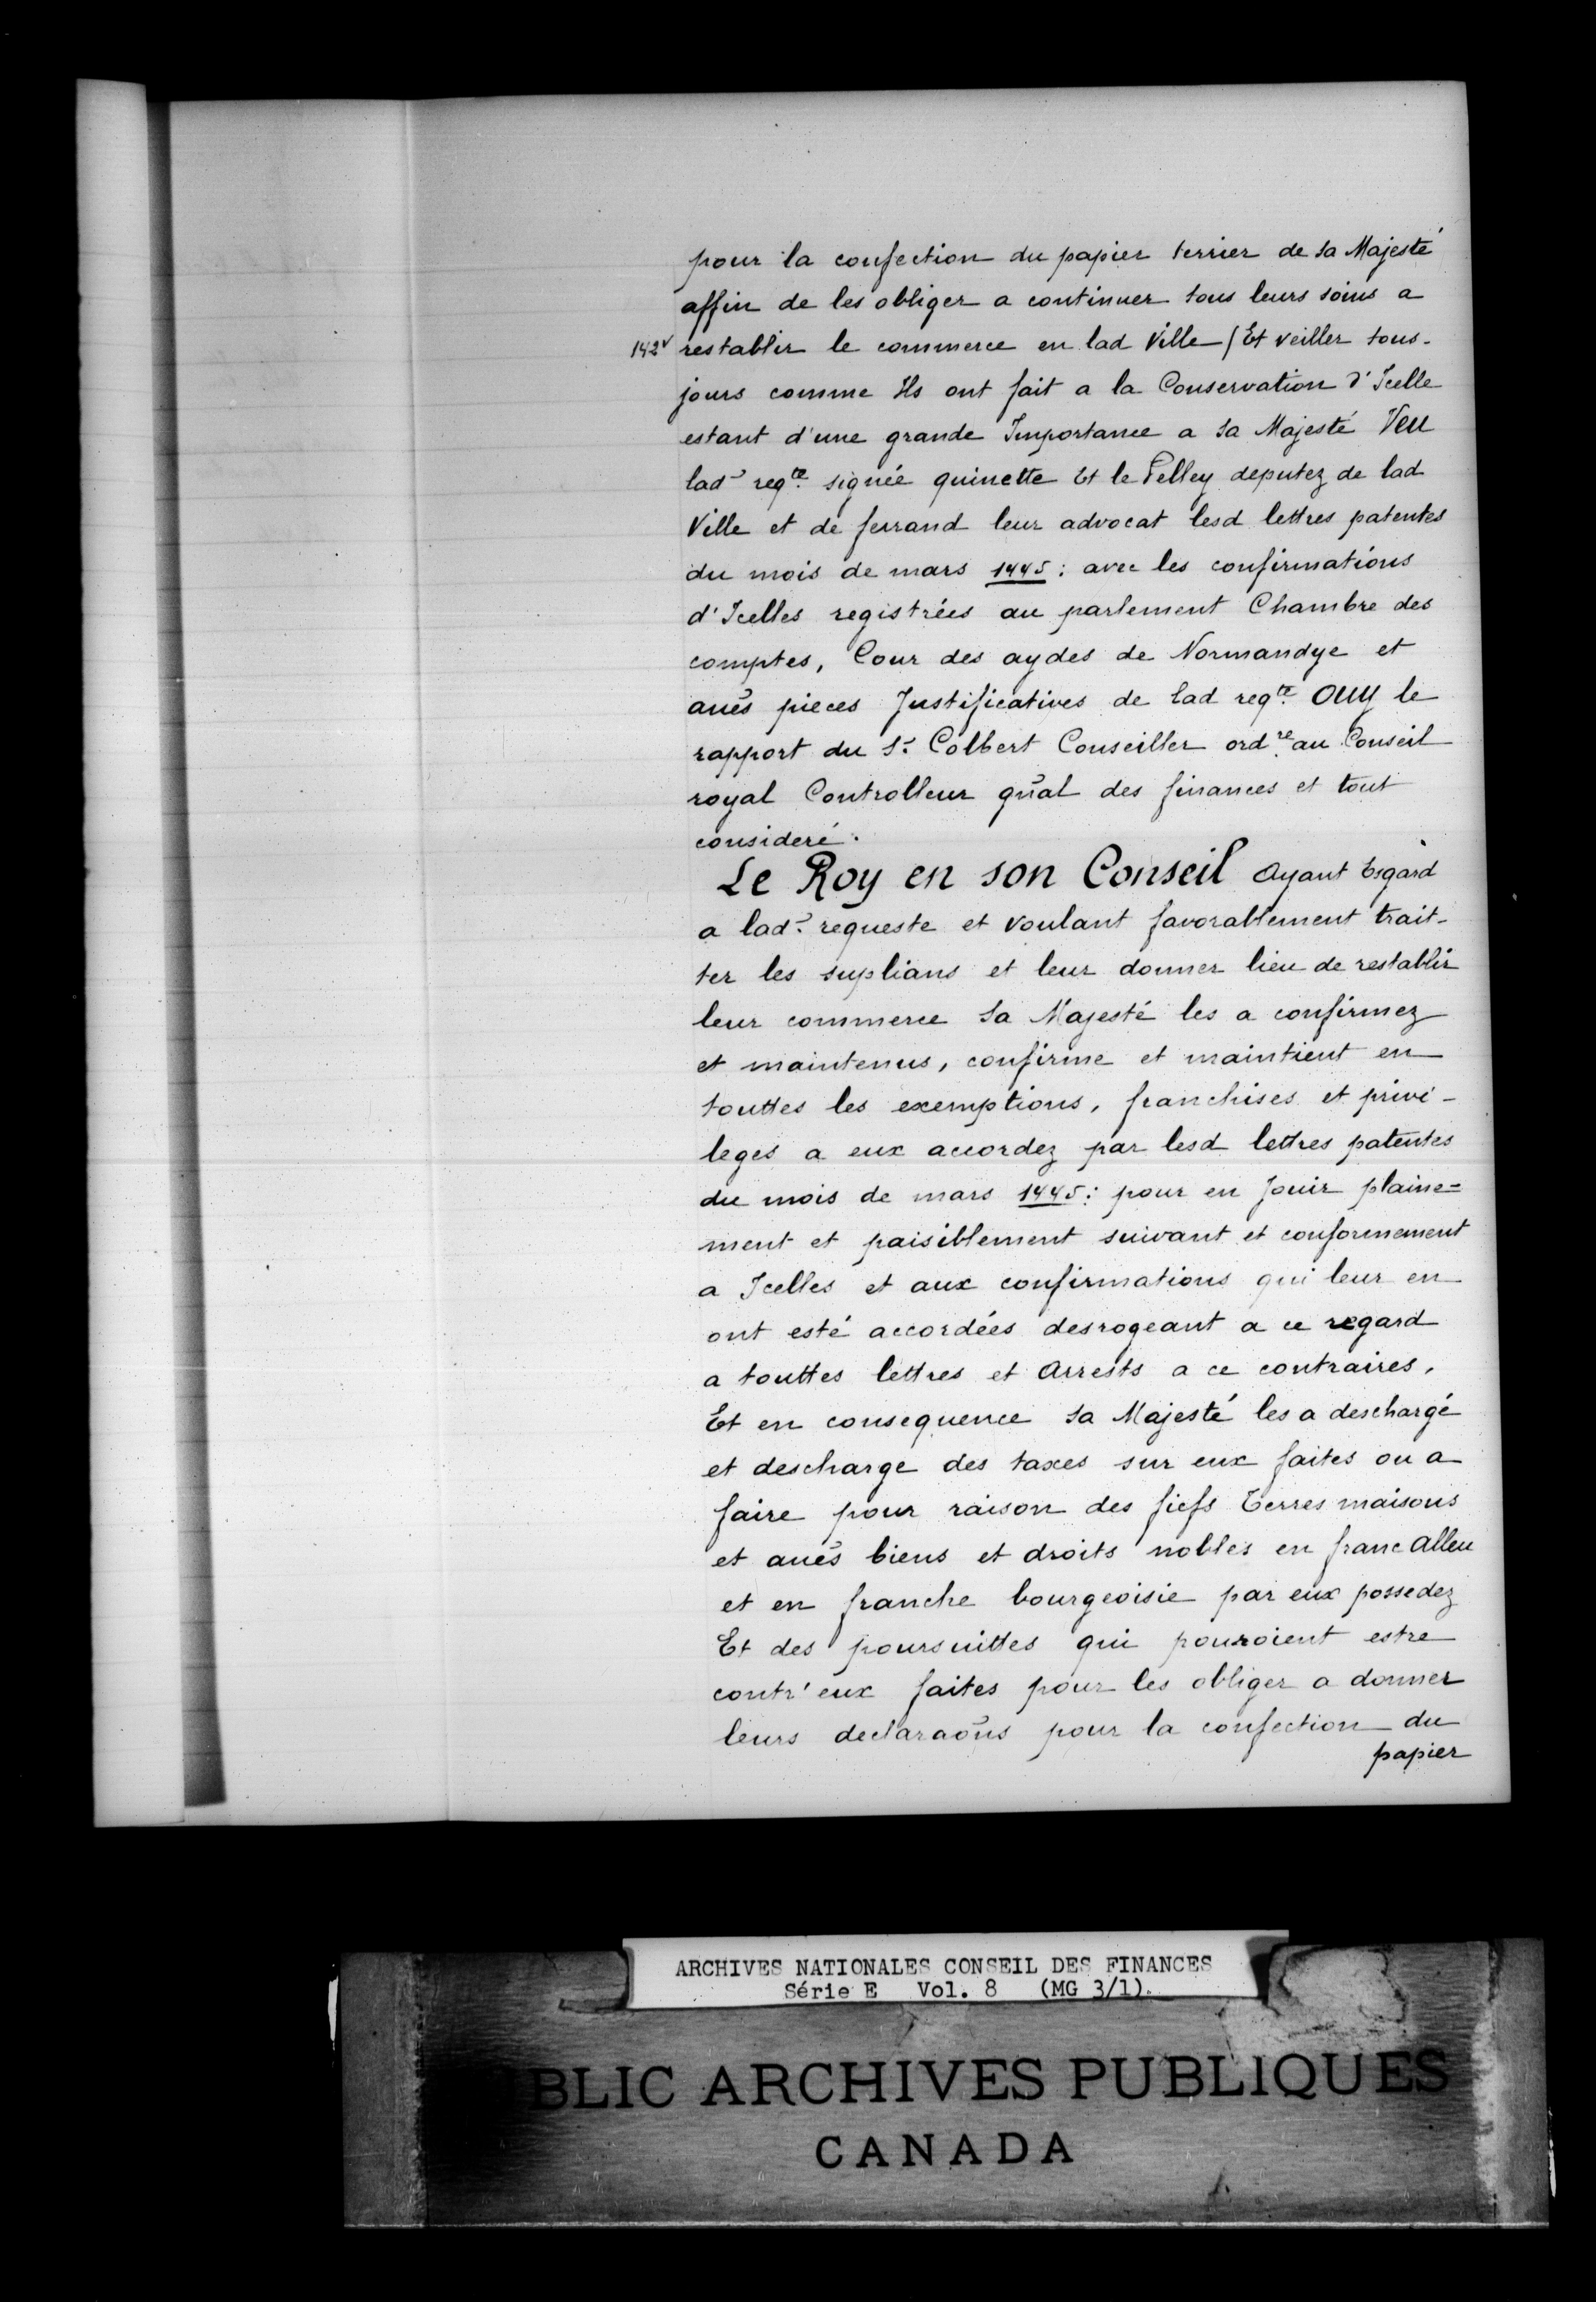 pour la confection du papier terrier de sa Majesté
affin de les obliger a continuer tous leurs soins a
142v restablir le commerce en lad Ville / Et veiller tous-
jours comme Ils ont fait a la Conservation d'Icelle
estant d'une grande Importance a sa Majesté Veu
lad reqte signée quinette Et le Pelley deputez de lad
Ville et de ferrand leur advocat lesd lettres patentes
du mois de mars 1445: avec les confirmations
d'Icelles registrées au parlement Chambre des
comptes, Cour des aydes de Normandye et
aues pieces Justificatives de lad reqte OUY le
rapport du Sr Colbert Conseiller ordre au Conseil
royal Controlleur gñal des finances et tout
consideré.
Le Roy en son Conseil Ayant Esgard
a lad. requeste et voulant favorablement trait-
ter les suplians et leur donner lieu de restablir
leur commerce sa Majesté les a confirmez
et maintenus, confirme et maintient en
touttes les exemptions, franchises et privi-
leges a eux accordez par lesd lettres patentes
du mois de mars 1445: pour en Jouir plaine=
ment et paisiblement suivant et conformement
a Icelles et aux confirmations qui leur en
ont esté accordées desrogeant a ce regard
a touttes lettres et Arrests a ce contraires,
Et en consequence sa Majesté les a deschargé
et descharge des taxes sur eux faites ou a
faire pour raison des fiefs Terres maisons
et aues biens et droits nobles en franc Alleu
et en franche bourgeoisie par eux possedez
Et des poursuittes qui pouroient estre
contr'eux faites pour les obliger a donner
leurs declaraõns pour la confection du
papier
ARCHIVES NATIONALES CONSEIL DES FINANCES
Série E Vol. 8 (MG 3/1).
BLIC ARCHIVES PUBLIQUES
CANADA